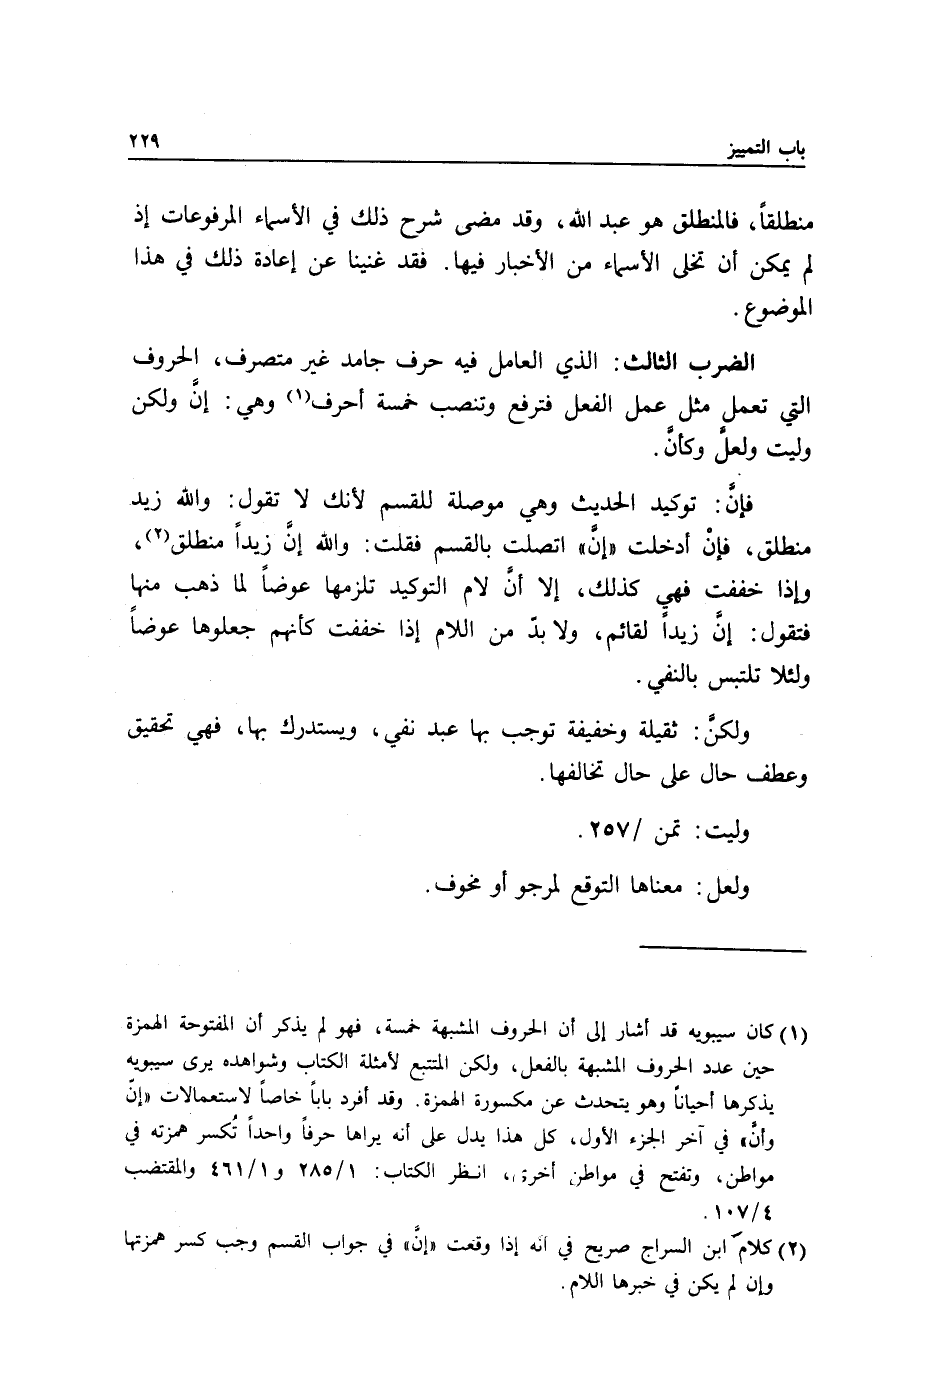 باب التمييز ٢٢٩
منطلقاً، فالمنطلق هو عبد الله، وقد مضى شرح ذلك في الأسماء المرفوعات إذ
لم يمكن أن تخلى الأسماء من الأخبار فيها. فقد غنينا عن إعادة ذلك في هذا
الموضوع.
الضرب الثالث: الذي العامل فيه حرف جامد غير متصرف، الحروف
التي تعمل مثل عمل الفعل فترفع وتنصب خمسة أحرف(١) وهي: إنَّ ولكن
وليت ولعلَّ وكأنَّ.
فإنَّ: توكيد الحديث وهي موصلة للقسم لأنك لا تقول: والله زيد
منطلق، فإنْ أدخلت «إنَّ» اتصلت بالقسم فقلت: والله إنَّ زيداً منطلق(٢)،
وإذا خففت فهي كذلك، إلا أنَّ لام التوكيد تلزمها عوضاً لما ذهب منها
فتقول: إنَّ زيداً لقائم، ولا بدّ من اللام إذا خففت كأنهم جعلوها عوضاً
ولئلا تلتبس بالنفي.
ولكنَّ: ثقيلة وخفيفة توجب بها عبد نفي، ويستدرك بها، فهي تحقيق
وعطف حال على حال تخالفها.
وليت: تمن /٢٥٧.
ولعل: معناها التوقع لمرجو أو مخوف.
(١) كان سيبويه قد أشار إلى أن الحروف المشبهة خمسة، فهو لم يذكر أن المفتوحة الهمزة
حين عدد الحروف المشبهة بالفعل، ولكن المتتبع لأمثلة الكتاب وشواهده يرى سيبويه
يذكرها أحياناً وهو يتحدث عن مكسورة الهمزة. وقد أفرد باباً خاصاً لاستعمالات «إنّ
وأنَّ» في آخر الجزء الأول، كل هذا يدل على أنه يراها حرفاً واحداً تُكسر همزته في
مواطن، وتفتح في مواطن أخرى، انظر الكتاب: ٢٨٥/١ و٤٦١/١ والمقتضب
١٠٧/٤.
(٢) كلام ابن السراج صريح في أنه إذا وقعت «إنَّ» في جواب القسم وجب كسر همزتها
وإن لم يكن في خبرها اللام.